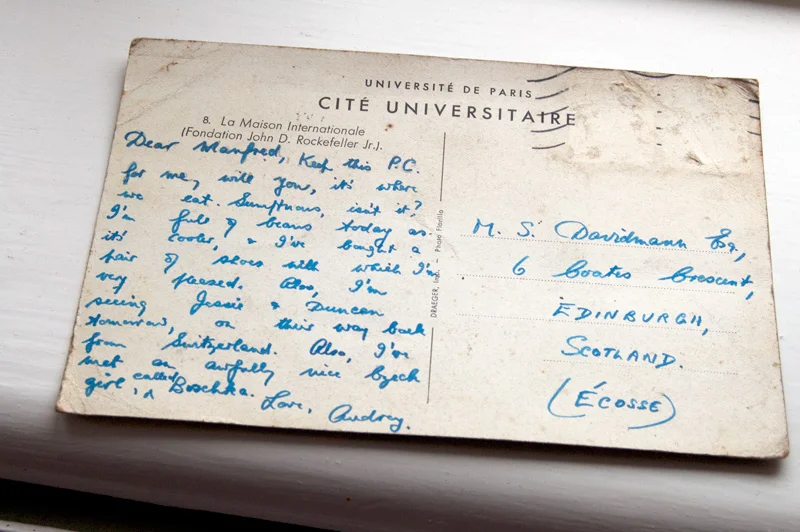 UNIVERSITÉ DE PARIS
CITÉ UNIVERSITAIRE
8. La Maison Internationale
(Fondation John D. Rockefeller Jr.).
Dear Manfred, Keep this P.C.
for me, will you, it's where
we eat. Sumptuous, isn't it?
I'm full of beans today as
it's cooler, & I've bought a
pair of shoes with which I'm
very pleased. Also, I'm
seeing Jessie & Duncan
tomorrow, on their way back
from Switzerland. Also, I've
met an awfully nice Czech
girl, called Boschka.
Love, Audrey.
DRAEGER, Imp. - Photo Florilla
M. S. Davidmann Esq.,
6 Coates Crescent,
EDINBURGH,
SCOTLAND.
(ÉCOSSE)